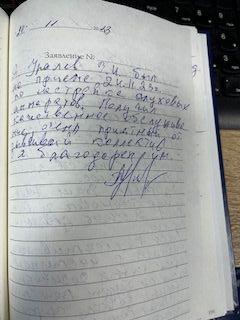 21. 11 - 23
Заявление №
Я Уралев В И был
на приеме 21.11.23г.
по настройке слуховых
аппаратов. Получил
качественное обслуживание
очень приятный
коллектив
Я благодарен им.